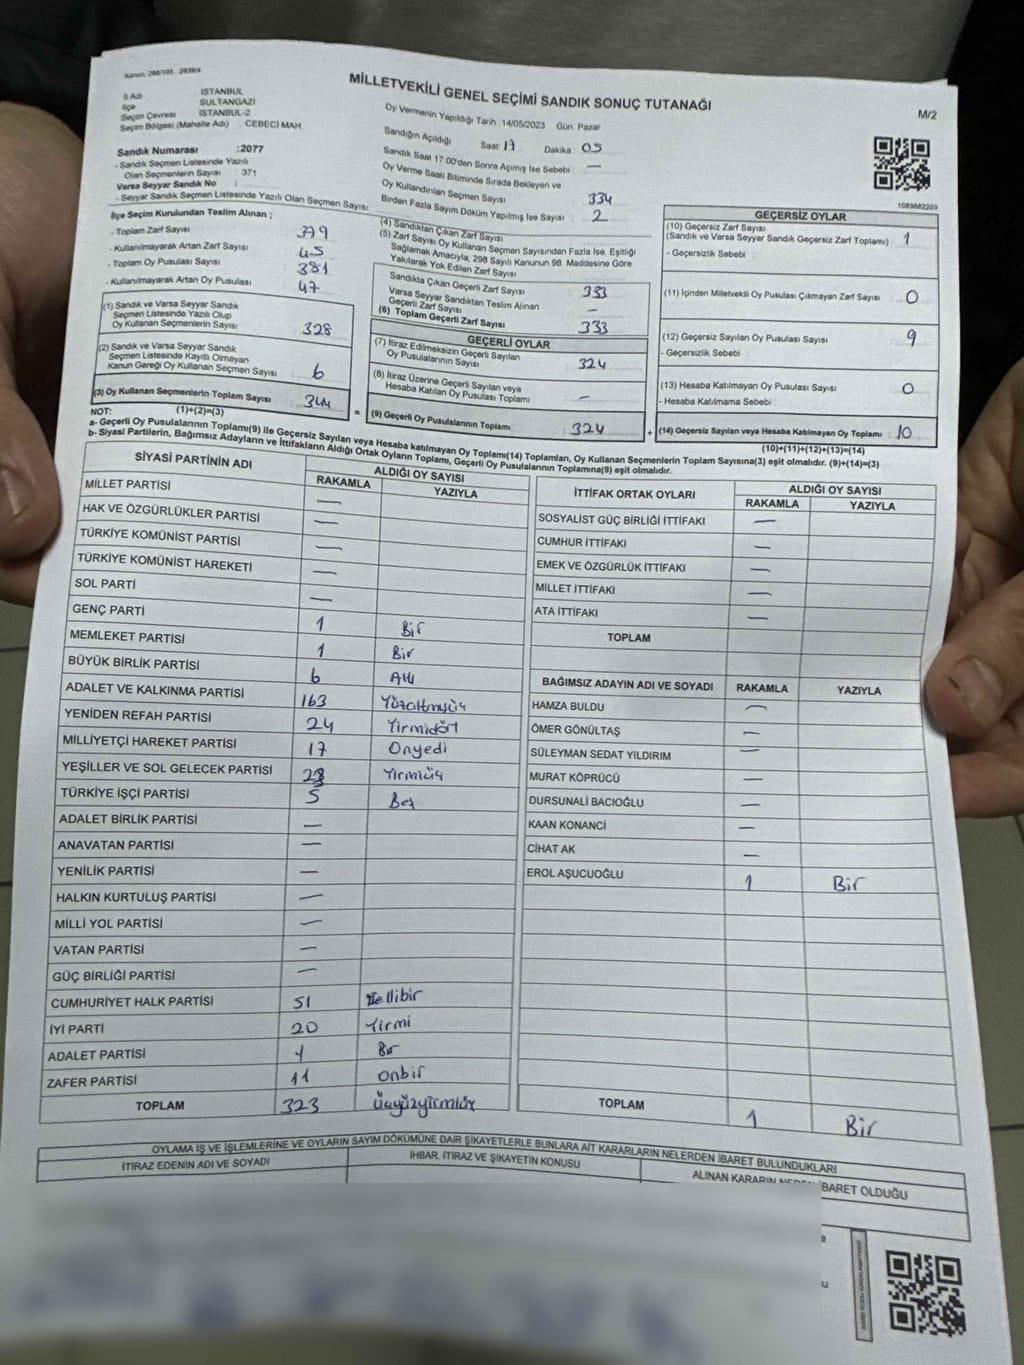 Kanun, 298/105 2839/4
MİLLETVEKİLİ GENEL SEÇİMİ SANDIK SONUÇ TUTANAĞI
M/2
İl Adı İSTANBUL
İlçe SULTANGAZİ
Seçim Çevresi İSTANBUL-2
Seçim Bölgesi (Mahalle Adı) CEBECİ MAH.
Oy Vermenin Yapıldığı Tarih 14/05/2023 Gün Pazar
Sandığın Açıldığı Saat 17 Dakika 05
Sandık Saat 17:00'den Sonra Açılmış İse Sebebi : —
Oy Verme Saati Bitiminde Sırada Bekleyen ve
Oy Kullandırılan Seçmen Sayısı
Birden Fazla Sayım Döküm Yapılmış İse Sayısı : 2
Sandık Numarası :2077
- Sandık Seçmen Listesinde Yazılı
Olan Seçmenlerin Sayısı 371
Varsa Seyyar Sandık No :
- Seyyar Sandık Seçmen Listesinde Yazılı Olan Seçmen Sayısı
İlçe Seçim Kurulundan Teslim Alınan ;
- Toplam Zarf Sayısı : 379
- Kullanılmayarak Artan Zarf Sayısı : 45
- Toplam Oy Pusulası Sayısı : 381
- Kullanılmayarak Artan Oy Pusulası : 47
(1) Sandık ve Varsa Seyyar Sandık
Seçmen Listesinde Yazılı Olup
Oy Kullanan Seçmenlerin Sayısı : 328
(2) Sandık ve Varsa Seyyar Sandık
Seçmen Listesinde Kayıtlı Olmayan
Kanun Gereği Oy Kullanan Seçmen Sayısı : 6
(3) Oy Kullanan Seçmenlerin Toplam Sayısı : 344
(1)+(2)=(3)
(4) Sandıktan Çıkan Zarf Sayısı : 334
(5) Zarf Sayısı Oy Kullanan Seçmen Sayısından Fazla İse, Eşitliği
Sağlamak Amacıyla, 298 Sayılı Kanunun 98. Maddesine Göre
Yakılarak Yok Edilen Zarf Sayısı
Sandıkta Çıkan Geçerli Zarf Sayısı : 333
Varsa Seyyar Sandıktan Teslim Alınan
Geçerli Zarf Sayısı : —
(6) Toplam Geçerli Zarf Sayısı : 333
GEÇERLİ OYLAR
(7) İtiraz Edilmeksizin Geçerli Sayılan
Oy Pusulalarının Sayısı : 324
(8) İtiraz Üzerine Geçerli Sayılan veya
Hesaba Katılan Oy Pusulası Toplamı : —
= (9) Geçerli Oy Pusulalarının Toplamı : 324
1083682203
GEÇERSİZ OYLAR
(10) Geçersiz Zarf Sayısı
(Sandık ve Varsa Seyyar Sandık Geçersiz Zarf Toplamı) : 1
- Geçersizlik Sebebi :
(11) İçinden Milletvekili Oy Pusulası Çıkmayan Zarf Sayısı : 0
(12) Geçersiz Sayılan Oy Pusulası Sayısı : 9
- Geçersizlik Sebebi
(13) Hesaba Katılmayan Oy Pusulası Sayısı : 0
- Hesaba Katılmama Sebebi
+ (14) Geçersiz Sayılan veya Hesaba Katılmayan Oy Toplamı : 10
(10)+(11)+(12)+(13)=(14)
NOT:
a- Geçerli Oy Pusulalarının Toplamı(9) ile Geçersiz Sayılan veya Hesaba katılmayan Oy Toplamı(14) Toplamları, Oy Kullanan Seçmenlerin Toplam Sayısına(3) eşit olmalıdır. (9)+(14)=(3)
b- Siyasi Partilerin, Bağımsız Adayların ve İttifakların Aldığı Ortak Oyların Toplamı, Geçerli Oy Pusulalarının Toplamına(9) eşit olmalıdır.
SİYASİ PARTİNİN ADI ALDIĞI OY SAYISI
RAKAMLA YAZIYLA
MİLLET PARTİSİ —
HAK VE ÖZGÜRLÜKLER PARTİSİ —
TÜRKİYE KOMÜNİST PARTİSİ —
TÜRKİYE KOMÜNİST HAREKETİ —
SOL PARTİ —
GENÇ PARTİ 1 Bir
MEMLEKET PARTİSİ 1 Bir
BÜYÜK BİRLİK PARTİSİ 6 Altı
ADALET VE KALKINMA PARTİSİ 163 Yüzaltmışüç
YENİDEN REFAH PARTİSİ 24 Yirmidört
MİLLİYETÇİ HAREKET PARTİSİ 17 Onyedi
YEŞİLLER VE SOL GELECEK PARTİSİ 23 Yirmiüç
TÜRKİYE İŞÇİ PARTİSİ 5 Beş
ADALET BİRLİK PARTİSİ —
ANAVATAN PARTİSİ —
YENİLİK PARTİSİ —
HALKIN KURTULUŞ PARTİSİ —
MİLLİ YOL PARTİSİ —
VATAN PARTİSİ —
GÜÇ BİRLİĞİ PARTİSİ —
CUMHURİYET HALK PARTİSİ 51 ellibir
İYİ PARTİ 20 Yirmi
ADALET PARTİSİ 1 Bir
ZAFER PARTİSİ 11 onbir
TOPLAM 323 Üçyüzyirmiüç
İTTİFAK ORTAK OYLARI ALDIĞI OY SAYISI
RAKAMLA YAZIYLA
SOSYALİST GÜÇ BİRLİĞİ İTTİFAKI —
CUMHUR İTTİFAKI —
EMEK VE ÖZGÜRLÜK İTTİFAKI —
MİLLET İTTİFAKI —
ATA İTTİFAKI —
TOPLAM
BAĞIMSIZ ADAYIN ADI VE SOYADI RAKAMLA YAZIYLA
HAMZA BULDU —
ÖMER GÖNÜLTAŞ —
SÜLEYMAN SEDAT YILDIRIM —
MURAT KÖPRÜCÜ —
DURSUNALİ BACIOĞLU —
KAAN KONANCİ —
CİHAT AK —
EROL AŞUCUOĞLU 1 Bir
TOPLAM 1 Bir
OYLAMA İŞ VE İŞLEMLERİNE VE OYLARIN SAYIM DÖKÜMÜNE DAİR ŞİKAYETLERLE BUNLARA AİT KARARLARIN NELERDEN İBARET BULUNDUKLARI
İTİRAZ EDENİN ADI VE SOYADI
İHBAR, İTİRAZ VE ŞİKAYETİN KONUSU
ALINAN KARARIN İBARET OLDUĞU